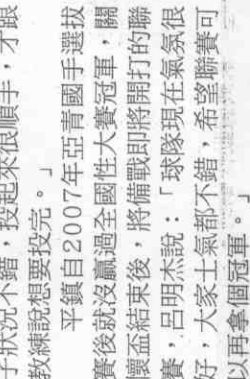 子狀況不錯，投起來很順手，才跟
教練說想要投完。」
平鎮自2007年亞青國手選拔
賽後就沒贏過全國性大賽冠軍，關
懷盃結束後，將備戰即將開打的聯
賽，呂明杰說：「球隊現在氣氛很
好，大家士氣都不錯，希望聯賽可
以再拿個冠軍。」